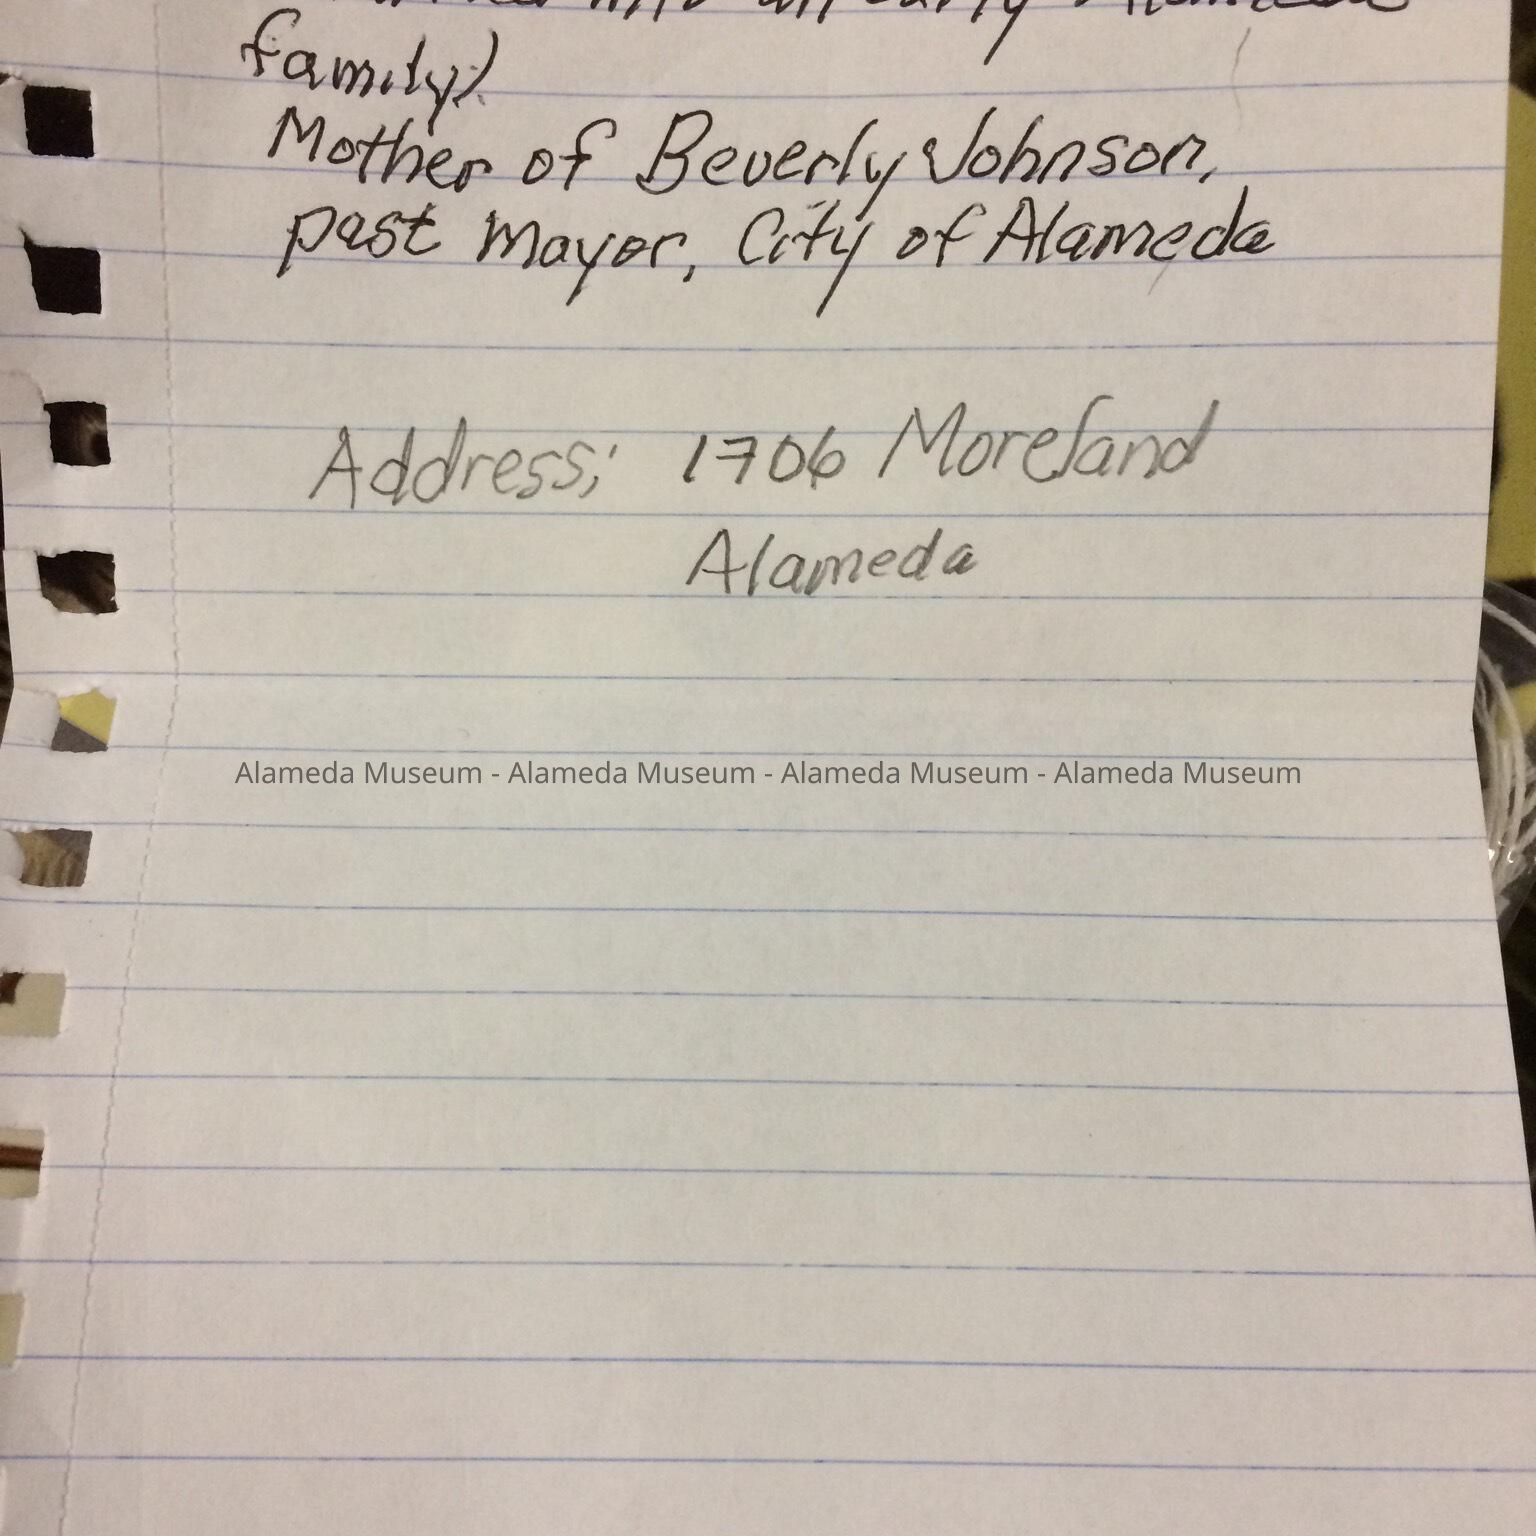 into an early Alameda
family)
Mother of Beverly Johnson,
past Mayor, City of Alameda
Address; 1706 Moreland
Alameda
Alameda Museum - Alameda Museum - Alameda Museum - Alameda Museum